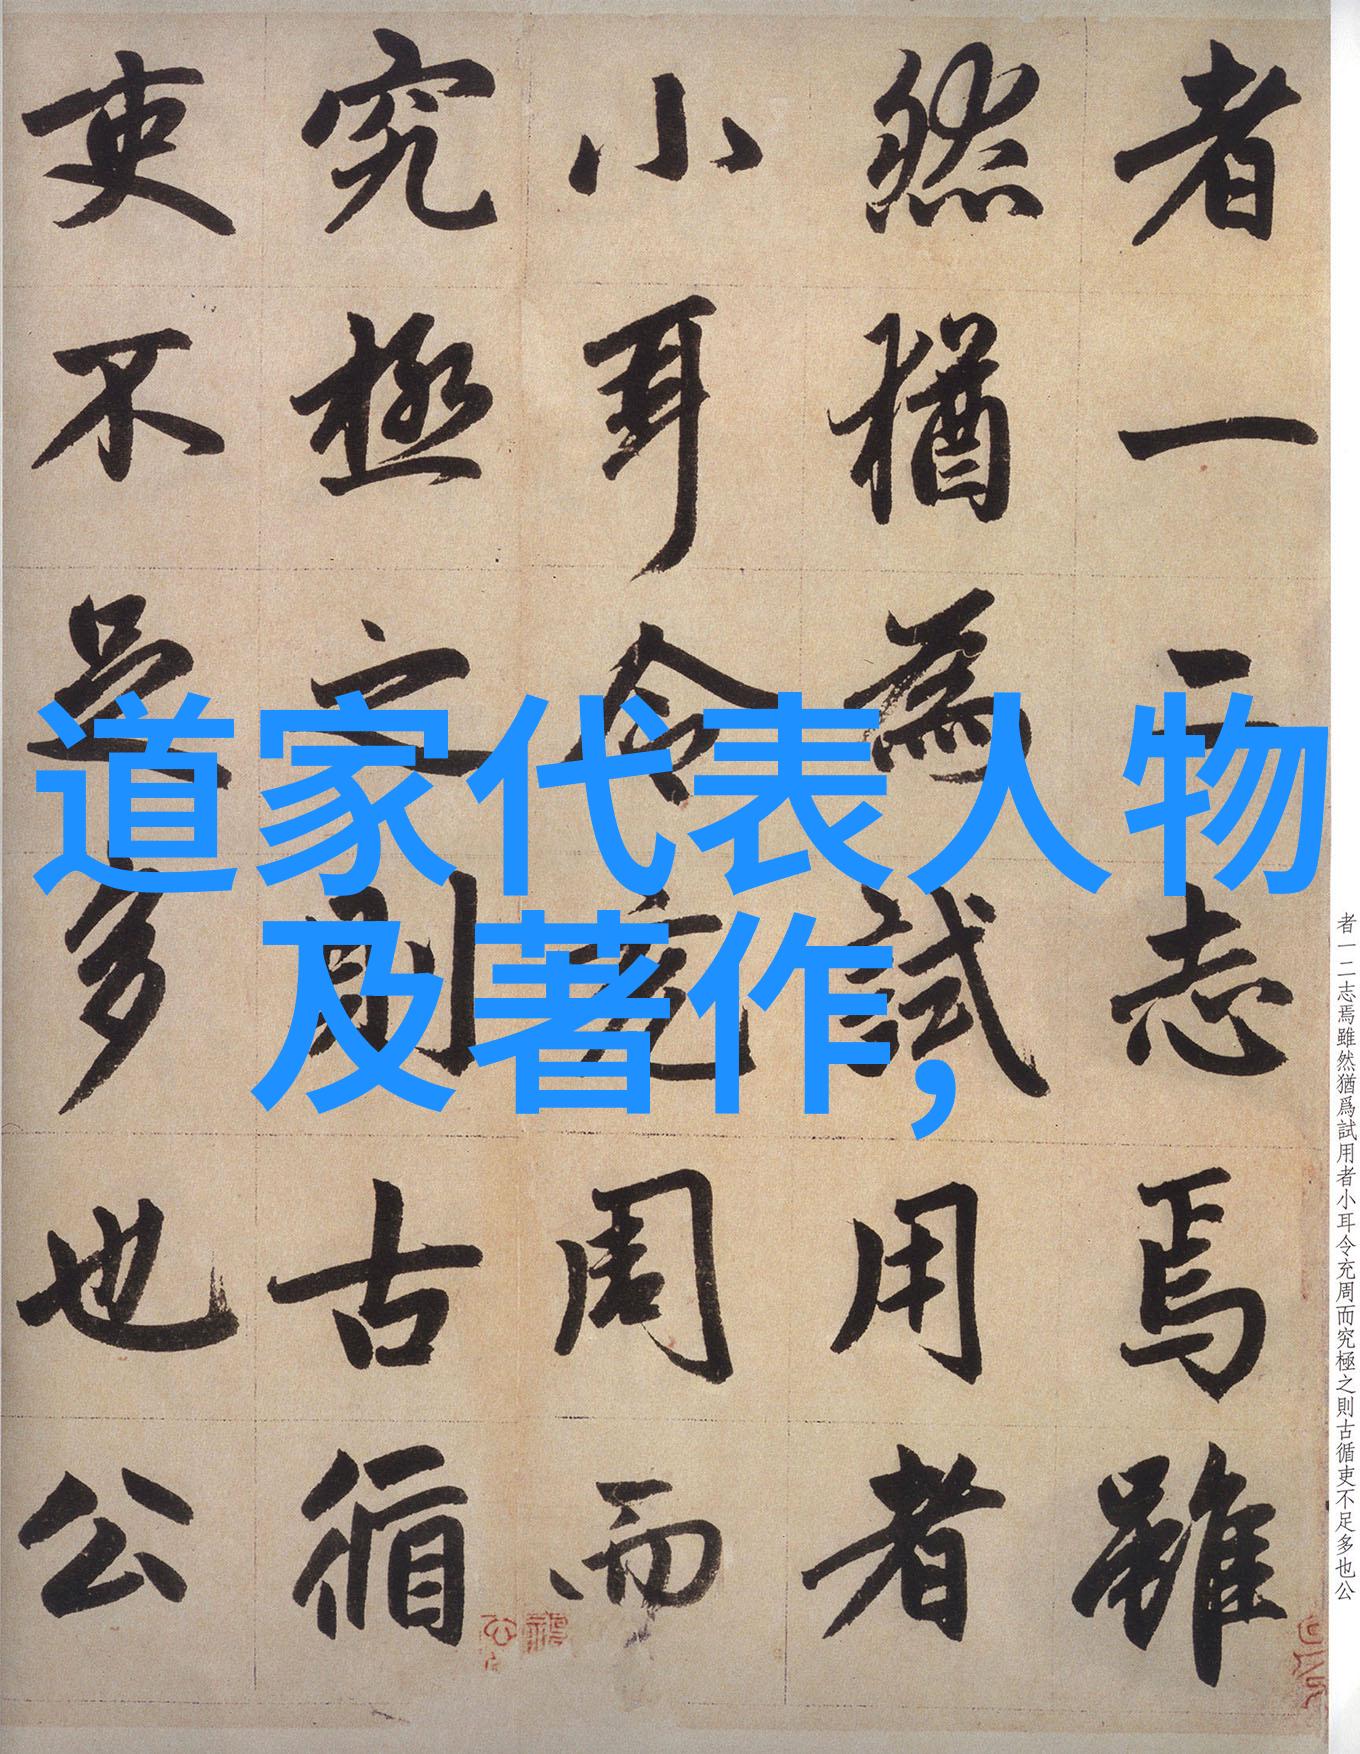 者一二志焉雖
然猶為試用者
小耳令充周而
究極之則古循
吏不足多也公
道家代表人物
及著作,
者一二志焉雖然猶爲試用者小耳令充周而究極之則古循吏不足多也公